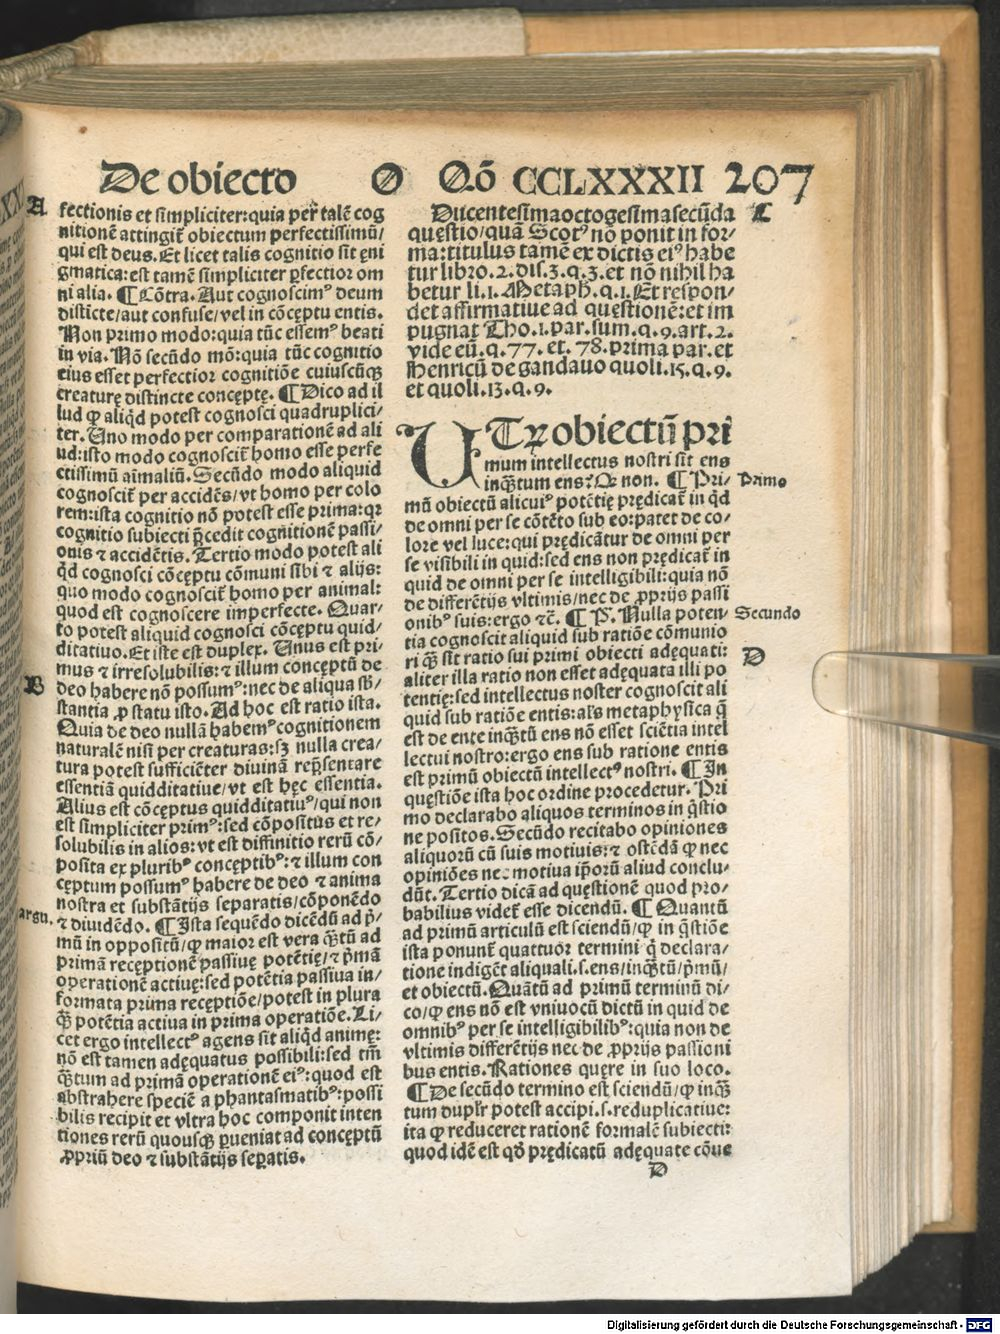 De obiecto O Qõ CCLXXXII 207
A
fectionis et simpliciter:quia per talē cog
nitionē attingit obiectum perfectissimū/
qui est deus. Et licet talis cognitio sit ęni
gmatica:est tamē simpliciter pfectior om
ni alia. ¶ Cōtra. Aut cognoscimꝰ deum
disticte/aut confuse/vel in cōcęptu entis.
Non primo modo:quia tūc essemꝰ beati
in via. Nō secūdo mō:quia tūc cognitio
eius esset perfectior cognitiōe cuiuscūqꝫ
creaturę distincte concęptę. ¶ Dico ad il
lud ꝙ aliqd potest cognosci quadruplici/
ter. Uno modo per comparationē ad ali
ud:isto modo cognoscit homo esse perfe
ctissimū aīmaliū. Secūdo modo aliquid
cognoscit per accidēs/vt homo per colo
rem:ista cognitio nō potest esse prima:qꝛ
cognitio subiecti pcedit cognitionē passi/
onis ⁊ accidētis. Tertio modo potest ali
qd cognosci cōcęptu cōmuni sibi ⁊ alijs:
quo modo cognoscit homo per animal:
quod est cognoscere imperfecte. Quar/
to potest aliquid cognosci cōcęptu quid/
ditatiuo. Et iste est duplex. Unus est pri/
mus ⁊ irresolubilis:⁊ illum concęptū de
B
deo habere nō possumꝰ:nec de aliqua sb/
stantia ꝓ statu isto. Ad hoc est ratio ista.
Quia de deo nullā habemꝰ cognitionem
naturalē nisi per creaturas:sꝫ nulla crea/
tura potest sufficiēter diuinā repsentare
essentiā quidditatiue/vt est hęc essentia.
Alius est cōcęptus quidditatiuꝰ/qui non
est simpliciter primꝰ:sed cōpositus et re/
solubilis in alios:vt est diffinitio rerū cō/
posita ex pluribꝰ concęptibꝰ:⁊ illum con
cęptum possumꝰ habere de deo ⁊ anima
nostra et substātijs separatis/cōponēdo
argu.
⁊ diuidēdo. ¶ Ista sequēdo dicēdū ad p/
mū in oppositū/ꝙ maior est vera qꝫtū ad
primā recęptionē passiuę potētię/⁊ pmā
operationē actiuę:sed potētia passiua in/
formata prima recęptiōe/potest in plura
qꝫ potētia actiua in prima operatiōe. Li/
cet ergo intellectꝰ agens sit aliqd animę:
nō est tamen adęquatus possibili:sed tm
qꝫtum ad primā operationē eiꝰ:quod est
abstrahere speciē a phantasmatibꝰ:possi
bilis recipit et vltra hoc componit inten
tiones rerū quousqꝫ pueniat ad concęptū
ꝓpriū deo ⁊ substātijs sepatis.
Ducentesimaoctogesimasecūda
C
quęstio/quā Scotꝰ nō ponit in for/
ma:titulus tamē ex dictis eiꝰ habe
tur libro.2.dis.3.q.3.et nō nihil ha
betur li.1.Metaph.q.1.Et respon/
det affirmatiue ad quęstionē:et im
pugnat Tho.1.par.sum.q.9.art.2.
vide eū.q.77.et.78.prima par.et
Henricū de gandauo quoli.15.q.9.
et quoli.13.q.9.
UTꝝ obiectū pri
mum intellectus nostri sit ens
inqꝫtum ens? Qꝫ non. ¶ Pri/
Primo
mū obiectū alicuiꝰ potētię prędicat in qd
de omni per se cōtēto sub eo:patet de co/
lore vel luce:qui prędicātur de omni per
se visibili in quid:sed ens non prędicat in
quid de omni per se intelligibili:quia nō
de differētijs vltimis/nec de ꝓprijs passi
onibꝰ suis:ergo ⁊c. ¶ P. Nulla poten/
Secundo
tia cognoscit aliquid sub ratiōe cōmunio
ri qꝫ sit ratio sui primi obiecti adęquati:
D
aliter illa ratio non esset adęquata illi po
tentię:sed intellectus noster cognoscit ali
quid sub ratiōe entis:als metaphysica q
est de ente inqꝫtū ens nō esset sciētia intel
lectui nostro:ergo ens sub ratione entis
est primū obiectū intellectꝰ nostri. ¶ In
quęstiōe ista hoc ordine procedetur. Pri
mo declarabo aliquos terminos in qstio
ne positos. Secūdo recitabo opiniones
aliquorū cū suis motiuis:⁊ ostēdā ꝙ nec
opiniōes nec motiua iporū aliud conclu/
dūt. Tertio dicā ad quęstionē quod pro/
babilius videt esse dicendū. ¶ Quantū
ad primū articulū est sciendū/ꝙ in qstiōe
ista ponunt quattuor termini q declara/
tione indigēt aliquali.s.ens/inqꝫtū/pmū/
et obiectū. Quātū ad primū terminū di/
co/ꝙ ens nō est vniuocū dictū in quid de
omnibꝰ per se intelligibilibꝰ:quia non de
vltimis differētijs nec de ꝓprijs passioni
bus entis. Rationes quęre in suo loco.
¶ De secūdo termino est sciendū/ꝙ inqꝫ
tum duplr potest accipi.s.reduplicatiue:
ita ꝙ reduceret rationē formalē subiecti:
quod idē est qd prędicatū adęquate cōue
D
Digitalisierung gefördert durch die Deutsche Forschungsgemeinschaft - DFG